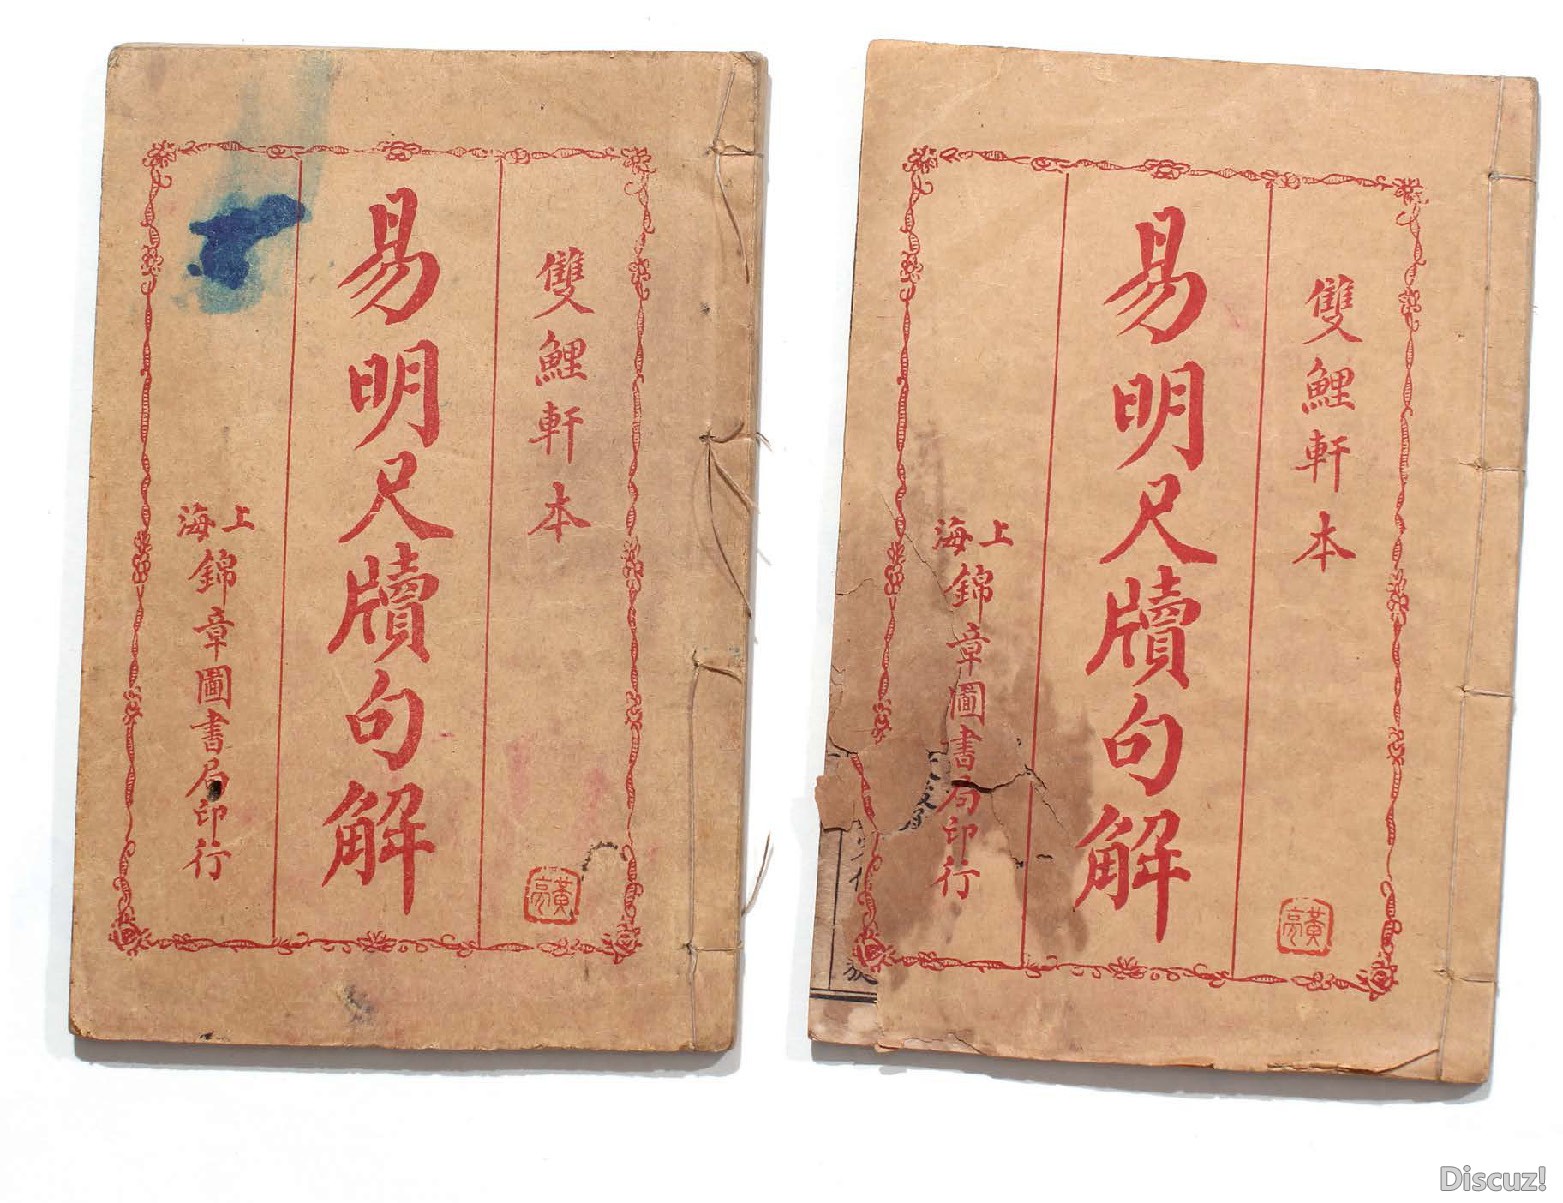 雙鯉軒本
易明尺牘句解
上海
錦章圖書局印行
黃亮
雙鯉軒本
易明尺牘句解
上海
錦章圖書局印行
黃亮
Discuz!